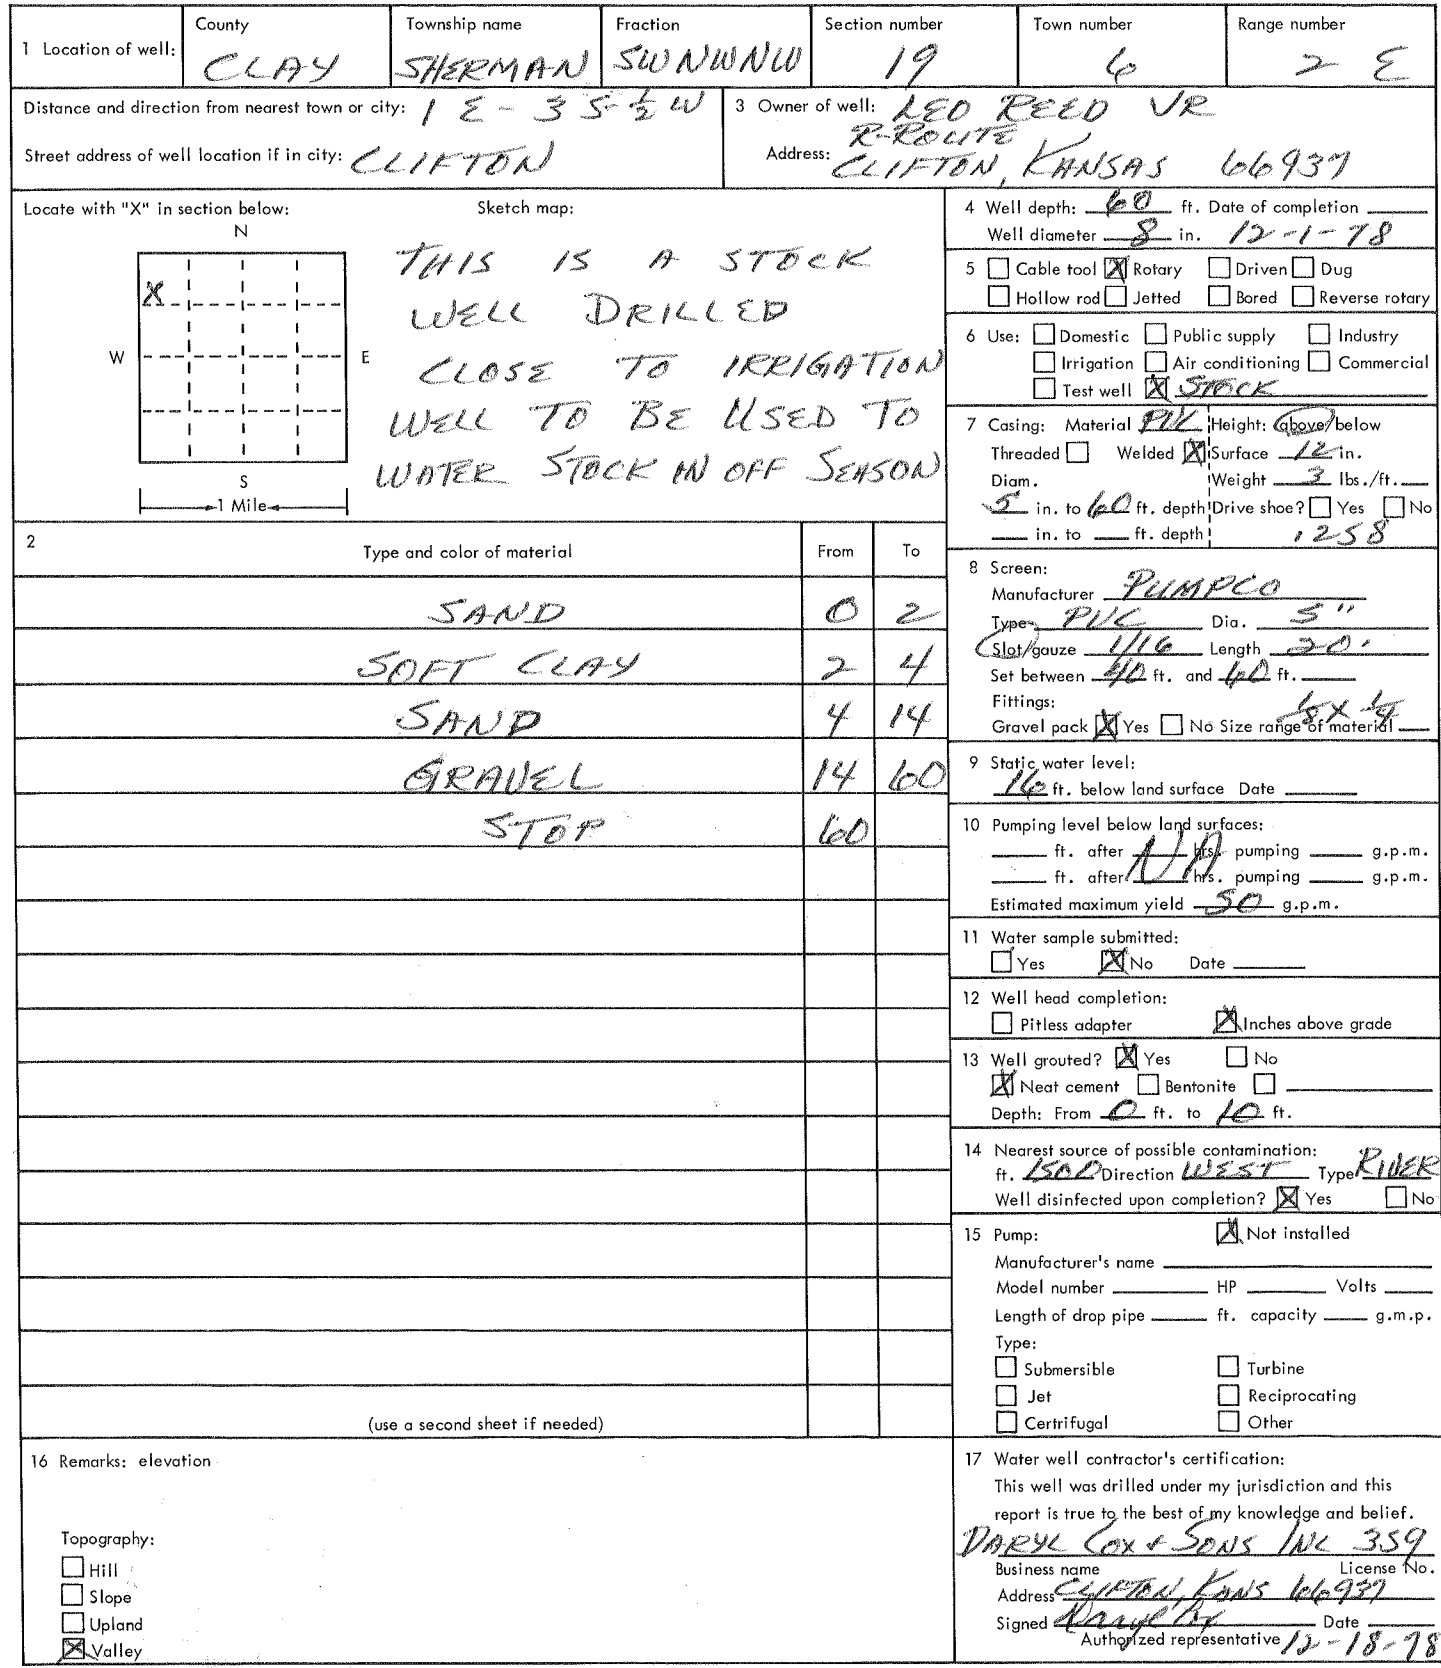 1 Location of well: County CLAY Township name SHERMAN Fraction SWNWNW Section number 19 Town number 6 Range number 2 E
Distance and direction from nearest town or city: 1 E - 3 S - 1/2 W
Street address of well location if in city: CLIFTON
3 Owner of well: LEO REED JR
R-ROUTE
Address: CLIFTON, KANSAS 66937
Locate with "X" in section below: Sketch map:
N
X
W E
S
1 Mile
THIS IS A STOCK
WELL DRILLED
CLOSE TO IRRIGATION
WELL TO BE USED TO
WATER STOCK IN OFF SEASON
2 Type and color of material From To
SAND 0 2
SOFT CLAY 2 4
SAND 4 14
GRAVEL 14 60
STOP 60
(use a second sheet if needed)
4 Well depth: 60 ft. Date of completion
Well diameter 8 in. 12-1-78
5 Cable tool X Rotary Driven Dug
Hollow rod Jetted Bored Reverse rotary
6 Use: Domestic Public supply Industry
Irrigation Air conditioning Commercial
Test well X STOCK
7 Casing: Material PVC Height: above/below
Threaded Welded X Surface 12 in.
Diam. Weight 3 lbs./ft.
5 in. to 60 ft. depth Drive shoe? Yes No
in. to ft. depth .258
8 Screen:
Manufacturer PUMPCO
Type PVC Dia. 5"
Slot/gauze 1/16 Length 20'
Set between 40 ft. and 60 ft.
Fittings: 1/8 X 1/4
Gravel pack X Yes No Size range of material
9 Static water level:
16 ft. below land surface Date
10 Pumping level below land surfaces:
ft. after NA hrs. pumping g.p.m.
ft. after hrs. pumping g.p.m.
Estimated maximum yield 50 g.p.m.
11 Water sample submitted:
Yes X No Date
12 Well head completion:
Pitless adapter X Inches above grade
13 Well grouted? X Yes No
X Neat cement Bentonite
Depth: From 0 ft. to 10 ft.
14 Nearest source of possible contamination:
ft. 1500 Direction WEST Type RIVER
Well disinfected upon completion? X Yes No
15 Pump: X Not installed
Manufacturer's name
Model number HP Volts
Length of drop pipe ft. capacity g.m.p.
Type:
Submersible Turbine
Jet Reciprocating
Certrifugal Other
16 Remarks: elevation
Topography:
Hill
Slope
Upland
X Valley
17 Water well contractor's certification:
This well was drilled under my jurisdiction and this
report is true to the best of my knowledge and belief.
DARYL COX & SONS INC 359
Business name License No.
Address CLIFTON, KANS 66937
Signed Daryl Cox Date
Authorized representative 12-18-78